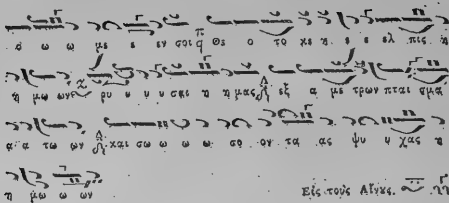 σ ω ω με ε εν σοι Θε ο το κε υ ε ε ελ πις υ
η μω ων ρυ υ η η σαι υ η μας εξ α με τρων πται σμα
α α τω ων και σω ω ω ω σο ον τα ας ψυ η χας υ
η μω ω ων
Εἰς τοὺς Αἴνους.